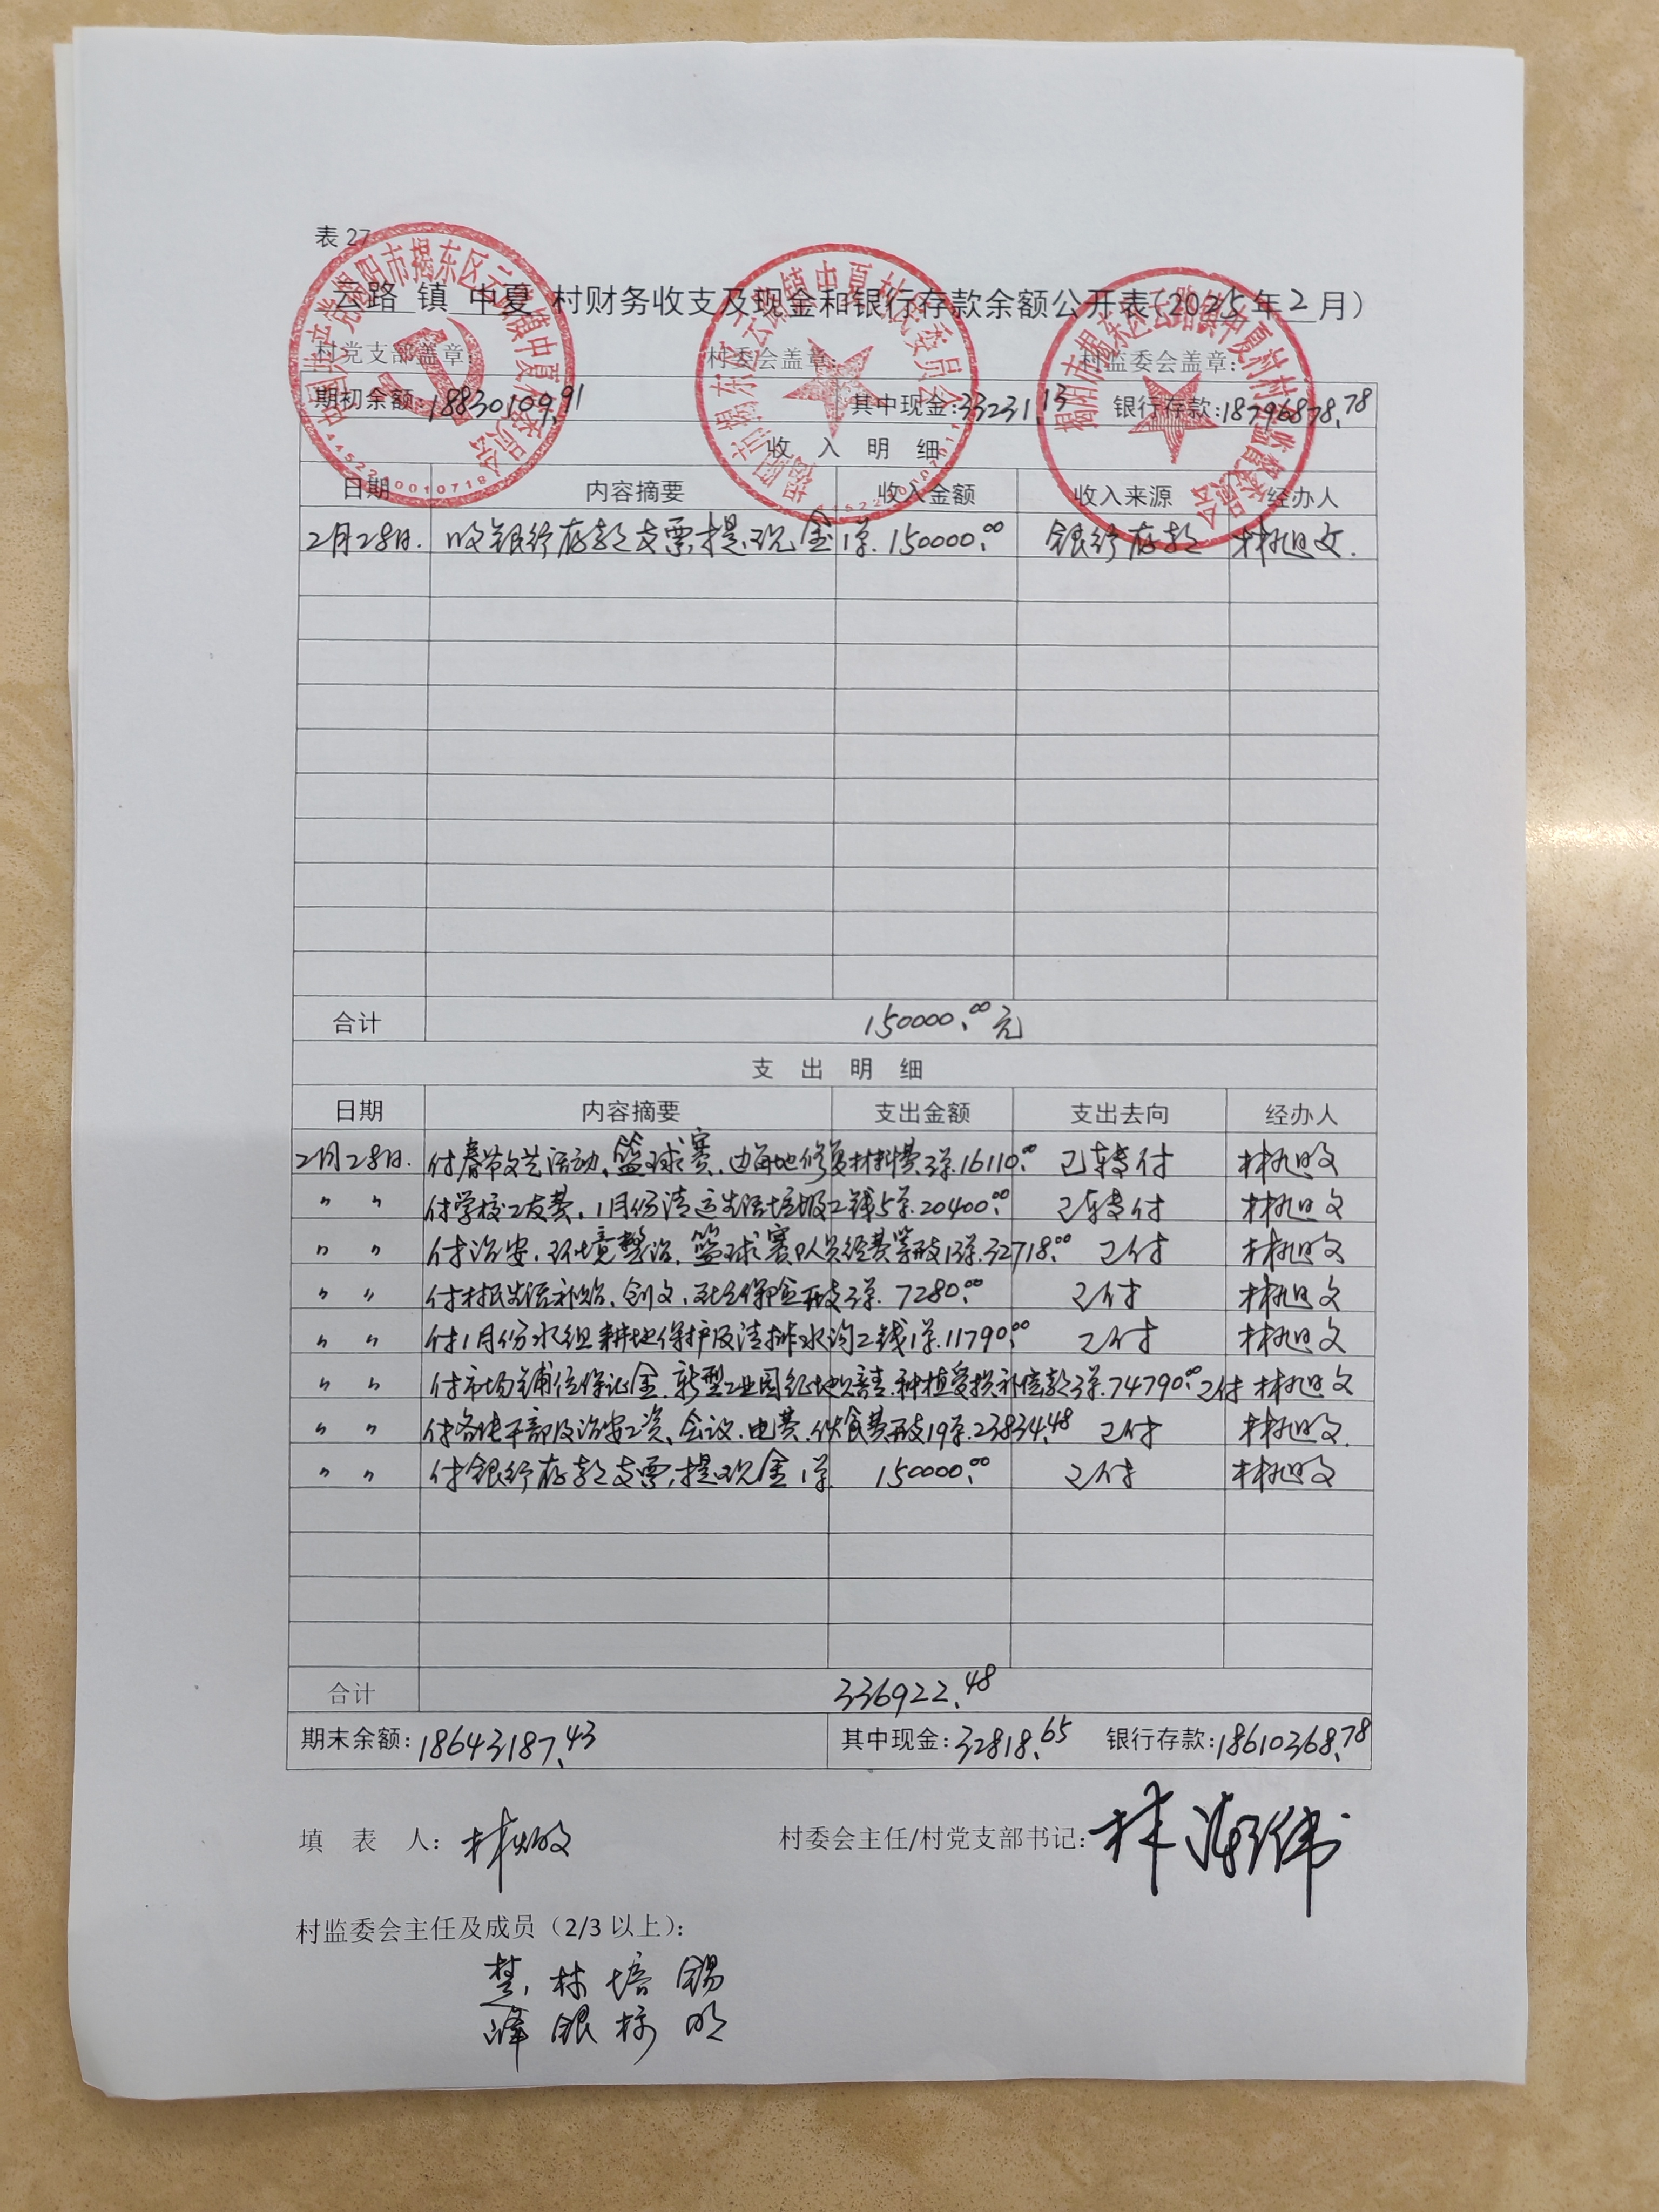 表 27
云路 镇 中夏 村财务收支及现金和银行存款余额公开表(2025年2月)
村党支部盖章: 村委会盖章: 村监委会盖章:
期初余额:18830109.91 其中现金:33231.13 银行存款:18796878.78
收 入 明 细
日期 内容摘要 收入金额 收入来源 经办人
2月28日. 收银行存款支票,提现金1单. 150000.00 银行存款 林旭文.
合计 150000.00元
支 出 明 细
日期 内容摘要 支出金额 支出去向 经办人
2月28日. 付春节文艺活动、篮球赛、 地修复材料费3单.16110.00 已转付 林旭文
〃 〃 付学校工友费,1月份清运生活垃圾工钱5单.20400.00 已转付 林旭文
〃 〃 付治安、环境整治、篮球赛队员经费等开支13单.32718.00 已付 林旭文
〃 〃 付村民生活补贴、创文、社会保险开支3单. 7280.00 已付 林旭文
〃 〃 付1月份水组耕地保护及清排水沟工钱1单.11790.00 已付 林旭文
〃 〃 付市场铺位保证金、新型工业园征地 种植受损补偿款3单.74790.00 已付 林旭文
〃 〃 付各线干部及治安工资、会议、电费、伙食费开支19单.23834.48 已付 林旭文.
〃 〃 付银行存款支票,提现金1单 150000.00 已付 林旭文
合计 336922.48
期末余额:18643187.43 其中现金:32818.65 银行存款:18610368.78
填 表 人: 林 村委会主任/村党支部书记: 林 伟
村监委会主任及成员(2/3 以上):
楚 林 培 锡
峰 银 明
中国共产党揭阳市揭东区云路镇中夏村委员会
揭阳市揭东区云路镇中夏村民委员会
揭阳市揭东区云路镇中夏村村务监督委员会